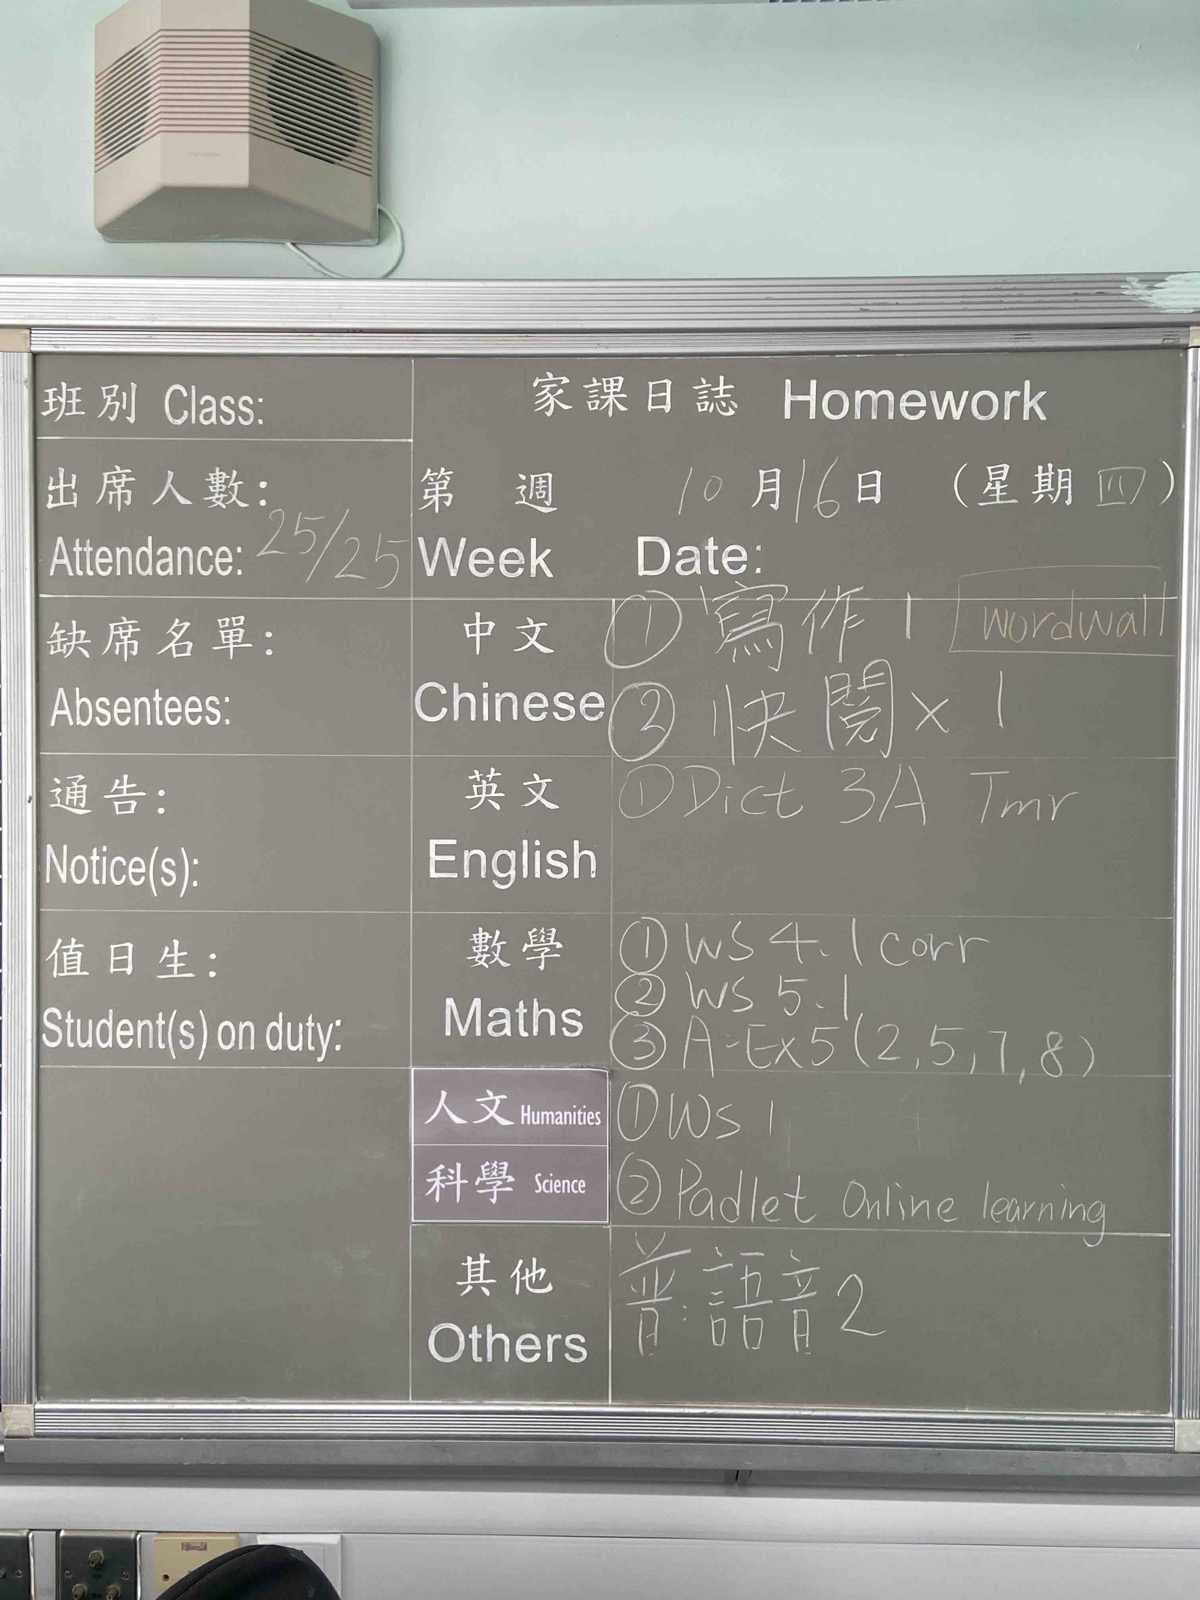 班別 Class:
家課日誌 Homework
出席人數:
Attendance: 25/25
第 週 10月16日 (星期四)
Week Date:
缺席名單:
Absentees:
中文
Chinese
① 寫作1 wordwall
② 快閱 x 1
通告:
Notice(s):
英文
English
① Dict 3A Tmr
值日生:
Student(s) on duty:
數學
Maths
① WS 4.1 corr
② WS 5.1
③ A:Ex5(2,5,7,8)
人文 Humanities
① WS 1
科學 Science
② Padlet Online learning
其他
Others
普:語音2